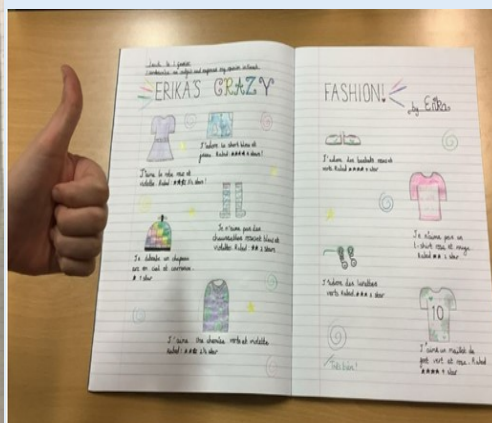 jeudi le 1 janvier
ERIKA'S CRAZY
J'adore le short bleu et
jaune. Rated ★★★★ 4 stars!
J'aime la robe rose et
violette. Rated: 3½ stars!
Je n'aime pas des
chaussettes
violettes. Rated: ★★ 2 stars.
Je déteste un chapeau
arc en ciel et
★ 1 star
J'aime une chemise verte et violette
Rated: 2½ star
FASHION!
by Erika
J'adore des baskets roses et
verts. Rated ★★★★ 4 star
Je n'aime pas un
t-shirt rose et rouge.
Rated ★★ 2 star.
J'adore des lunettes
verts. Rated ★★★ 3 star
10
J'aime un maillot de
foot vert et rose. Rated
★★★★ 4 star
Très bien!